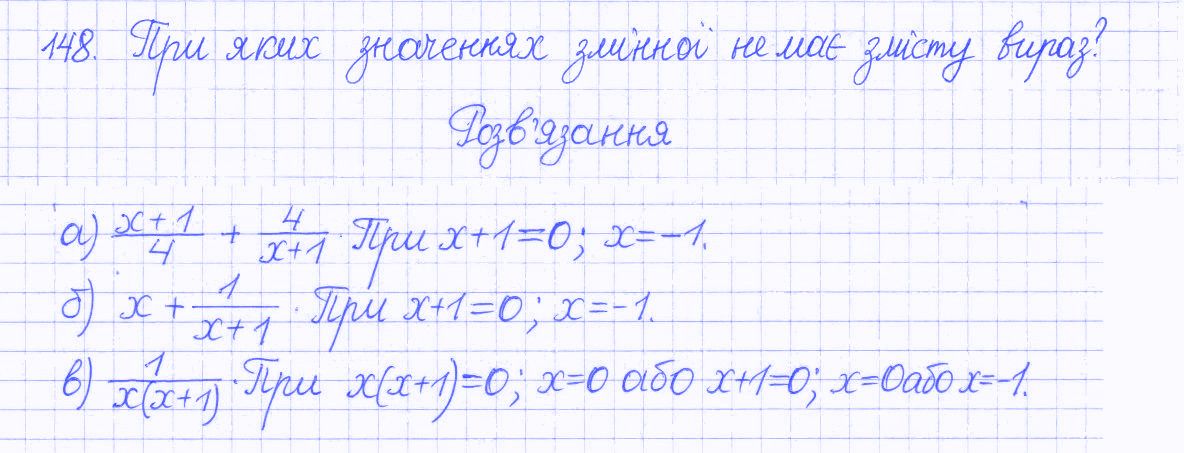 148. При яких значеннях змінної не має змісту вираз?
Розв'язання
а) (x+1)/4 + 4/(x+1). При x+1=0; x=-1.
б) x + 1/(x+1). При x+1=0; x=-1.
в) 1/(x(x+1)). При x(x+1)=0; x=0 або x+1=0; x=0 або x=-1.